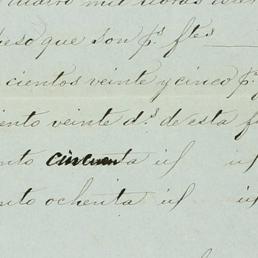 cuatro mil libras
peso que son p.s ftes
cientos veinte y cinco p.s
ento veinte d.s de esta f
nto cincuenta id id
nto ochenta id id